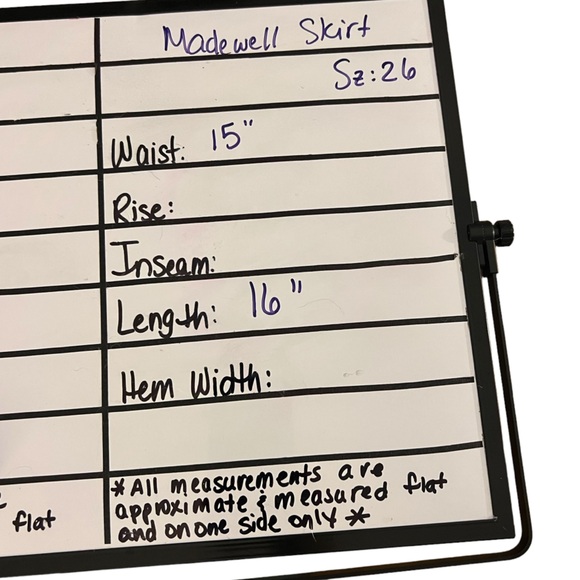 Madewell Skirt
Sz: 26
Waist: 15"
Rise:
Inseam:
Length: 16"
Hem Width:
*All measurements are
approximate & measured flat
and on one side only *
flat